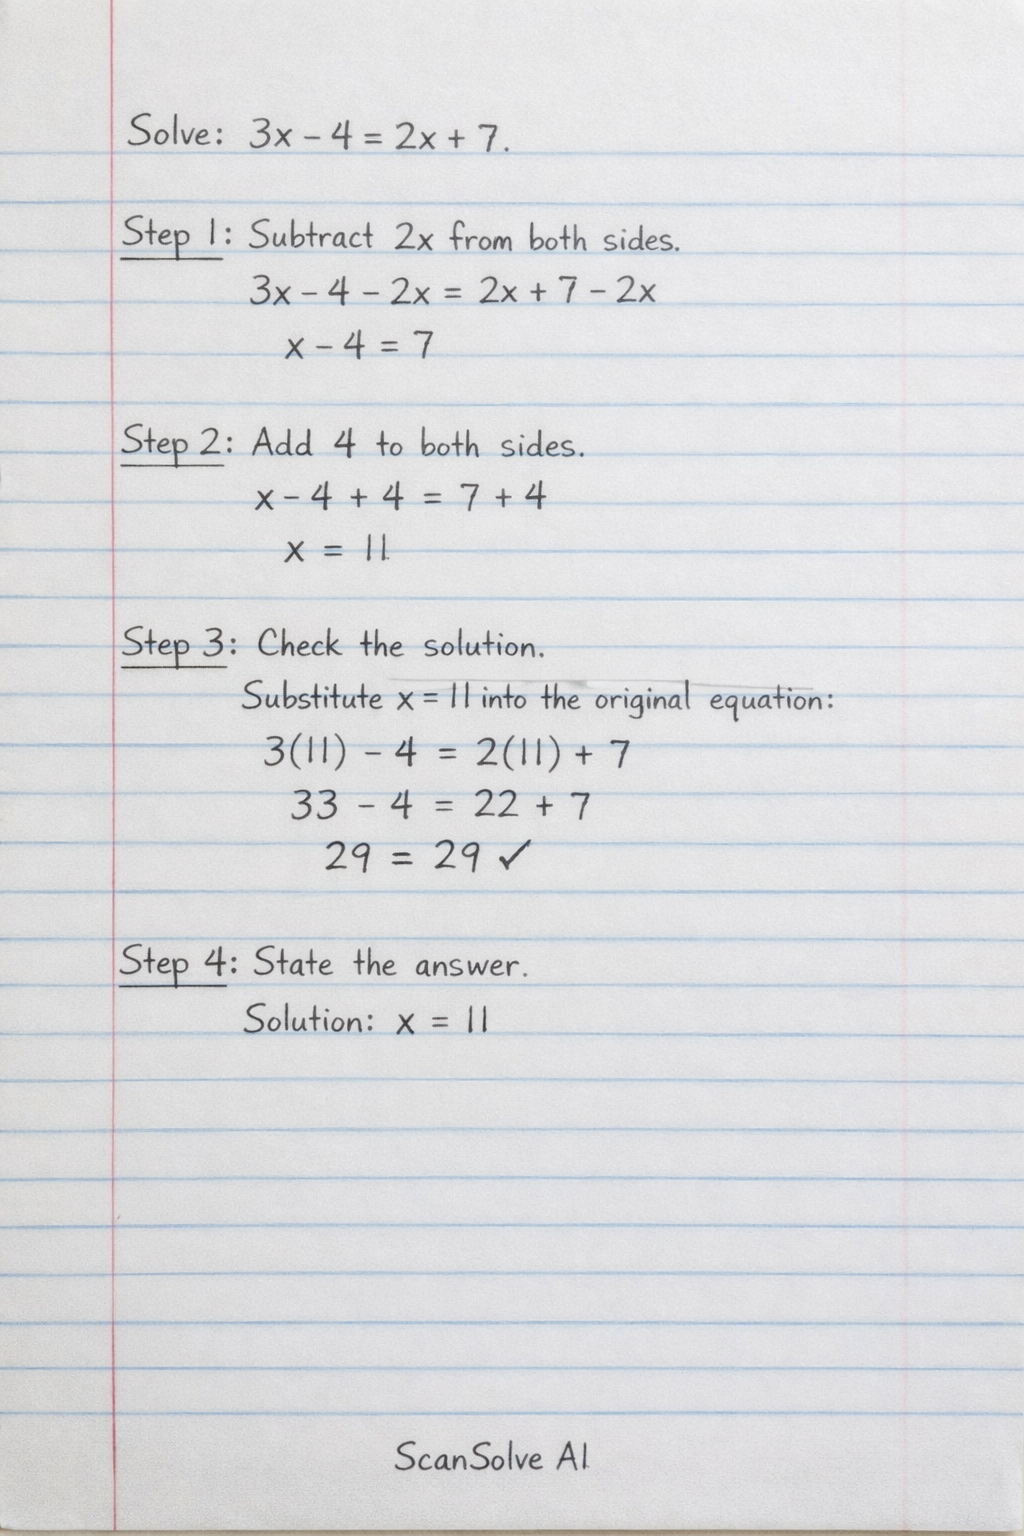 Solve: 3x - 4 = 2x + 7.
Step 1: Subtract 2x from both sides.
3x - 4 - 2x = 2x + 7 - 2x
x - 4 = 7
Step 2: Add 4 to both sides.
x - 4 + 4 = 7 + 4
x = 11
Step 3: Check the solution.
Substitute x = 11 into the original equation:
3(11) - 4 = 2(11) + 7
33 - 4 = 22 + 7
29 = 29 ✓
Step 4: State the answer.
Solution: x = 11
ScanSolve AI